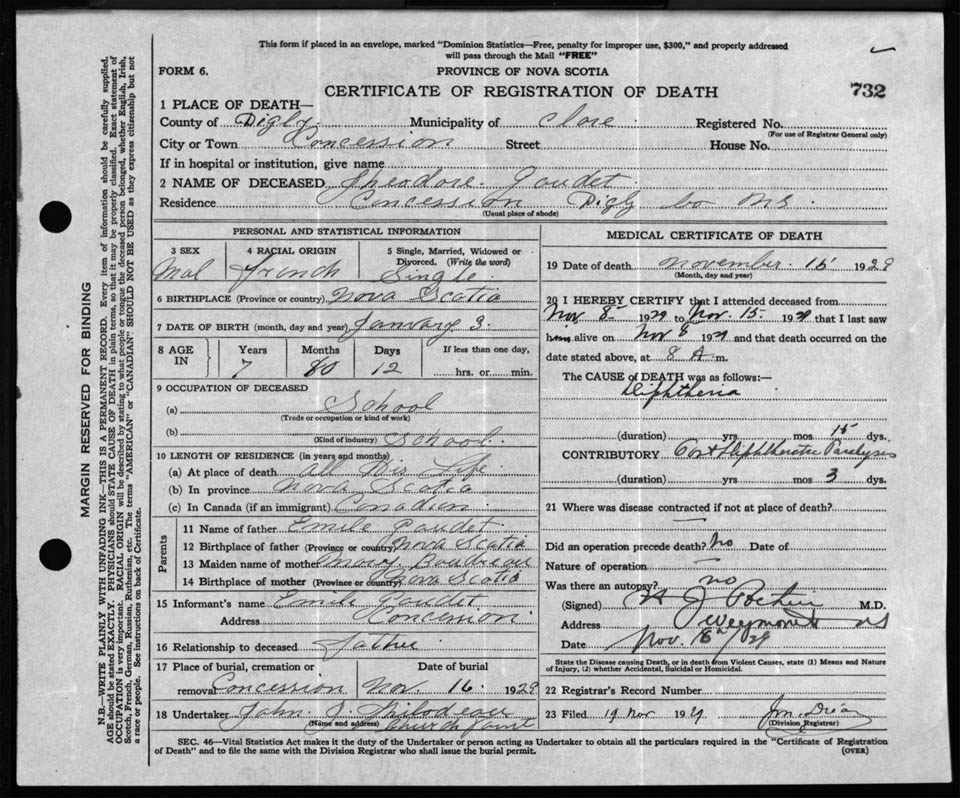 This form if placed in an envelope, marked "Dominion Statistics—Free, penalty for improper use, $300," and properly addressed
will pass through the Mail "FREE"
FORM 6.
PROVINCE OF NOVA SCOTIA
CERTIFICATE OF REGISTRATION OF DEATH
732
1 PLACE OF DEATH—
County of Digby Municipality of Clare Registered No.
(For use of Registrar General only)
City or Town Concession Street House No.
If in hospital or institution, give name
2 NAME OF DECEASED Theodore Gaudet
Residence Concession Digby Co NS
(Usual place of abode)
PERSONAL AND STATISTICAL INFORMATION
3 SEX 4 RACIAL ORIGIN 5 Single, Married, Widowed or
Divorced. (Write the word)
Mal French Single
6 BIRTHPLACE (Province or country) Nova Scotia
7 DATE OF BIRTH (month, day and year) January 3
8 AGE IN Years Months Days If less than one day,
7 12 hrs. or min.
9 OCCUPATION OF DECEASED
(a) School
(Trade or occupation or kind of work)
(b) School
(Kind of industry)
10 LENGTH OF RESIDENCE (in years and months)
(a) At place of death all His Life
(b) In province Nova Scotia
(c) In Canada (if an immigrant) Canadien
Parents
11 Name of father Emile Gaudet
12 Birthplace of father (Province or country) Nova Scotia
13 Maiden name of mother Mary Boudreau
14 Birthplace of mother (Province or country) Nova Scotia
15 Informant's name Emile Gaudet
Address Concession
16 Relationship to deceased father
17 Place of burial, cremation or removal Date of burial
Concession Nov. 16. 1929
18 Undertaker John J Thibodeau
(Name and address) Church Point
MEDICAL CERTIFICATE OF DEATH
19 Date of death november 15 1929
(Month, day and year)
20 I HEREBY CERTIFY that I attended deceased from
Nov 8 1929 to Nov. 15 1929 that I last saw
him alive on Nov 8 1929 and that death occurred on the
date stated above, at 8 A m.
The CAUSE of DEATH was as follows:—
Diphtheria
(duration) yrs mos 15 dys.
CONTRIBUTORY Post Diphtheretic Paralysis
(duration) yrs mos 3 dys.
21 Where was disease contracted if not at place of death?
Did an operation precede death? No Date of
Nature of operation
Was there an autopsy? no
(Signed) H J Pothier M.D.
Address Weymouth NS
Date Nov. 18th/29
State the Disease causing Death, or in death from Violent Causes, state (1) Means and Nature
of Injury, (2) whether Accidental, Suicidal or Homicidal.
22 Registrar's Record Number
23 Filed 19 Nov 1929
(Division Registrar)
SEC. 46—Vital Statistics Act makes it the duty of the Undertaker or person acting as Undertaker to obtain all the particulars required in the "Certificate of Registration
of Death" and to file the same with the Division Registrar who shall issue the burial permit.
(OVER)
MARGIN RESERVED FOR BINDING
N.B.—WRITE PLAINLY WITH UNFADING INK—THIS IS A PERMANENT RECORD. Every item of information should be carefully supplied.
AGE should be stated EXACTLY. PHYSICIANS should STATE CAUSE OF DEATH in plain terms, so that it may be properly classified. Exact statement of
OCCUPATION is very important. RACIAL ORIGIN will be described by stating to what people or tongue the deceased person belonged, whether English, Irish,
Scotch, French, German, Russian, Ruthenian, etc. The terms "AMERICAN" or "CANADIAN" SHOULD NOT BE USED as they express citizenship but not
a race or people. See instructions on back of Certificate.